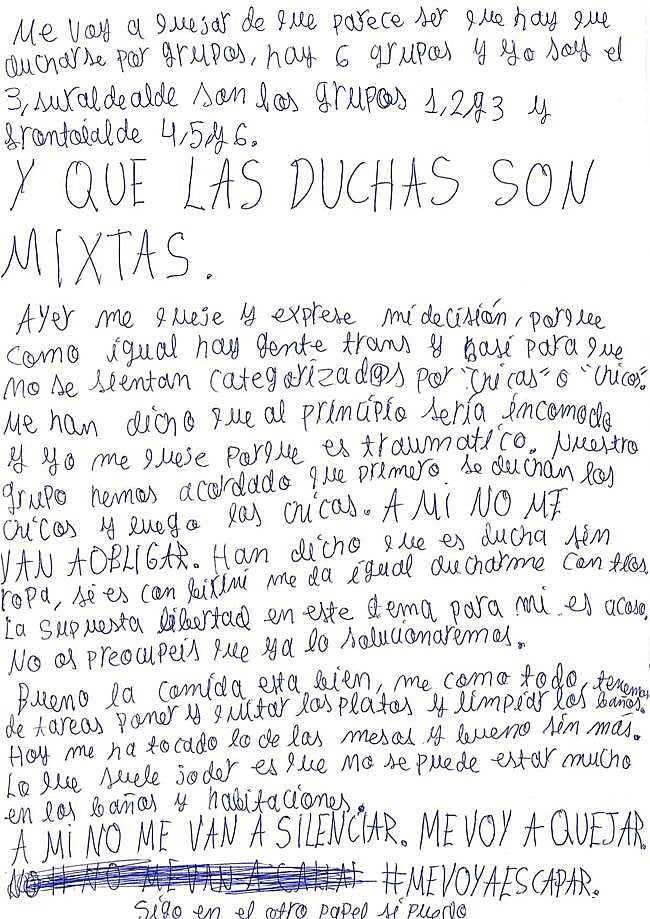 Me voy a quejar de que parece ser que hay que
ducharse por grupos, hay 6 grupos y yo soy el
3, suraldealde son los grupos 1,2y3 y
frontoialde 4,5y6.
Y QUE LAS DUCHAS SON
MIXTAS.
Ayer me queje y exprese mi decisión, porque
como igual hay gente trans y basi para que
no se sientan categorizad@s por "chicas" o "chicos".
Me han dicho que al principio sería incomodo
y yo me queje porque es traumatico. Nuestro
grupo hemos acordado que primero se duchan los
chicos y luego las chicas. A MI NO ME
VAN AOBLIGAR. Han dicho que es ducha sin
ropa, si es con bikini me da igual ducharme con tios.
La supuesta libertad en este tema para mi es acoso.
No os preocupeis que ya lo solucionaremos.
Bueno la comida esta bien, me como todo, tenemos
de tareas poner y quitar los platos y limpiar los baños.
Hoy me ha tocado lo de las mesas y bueno sin más.
Lo que suele joder es que no se puede estar mucho
en los baños y habitaciones.
A MI NO ME VAN A SILENCIAR. ME VOY A QUEJAR.
NO ME VAN A CALLAR #MEVOYAESCAPAR.
Sigo en el otro papel si puedo